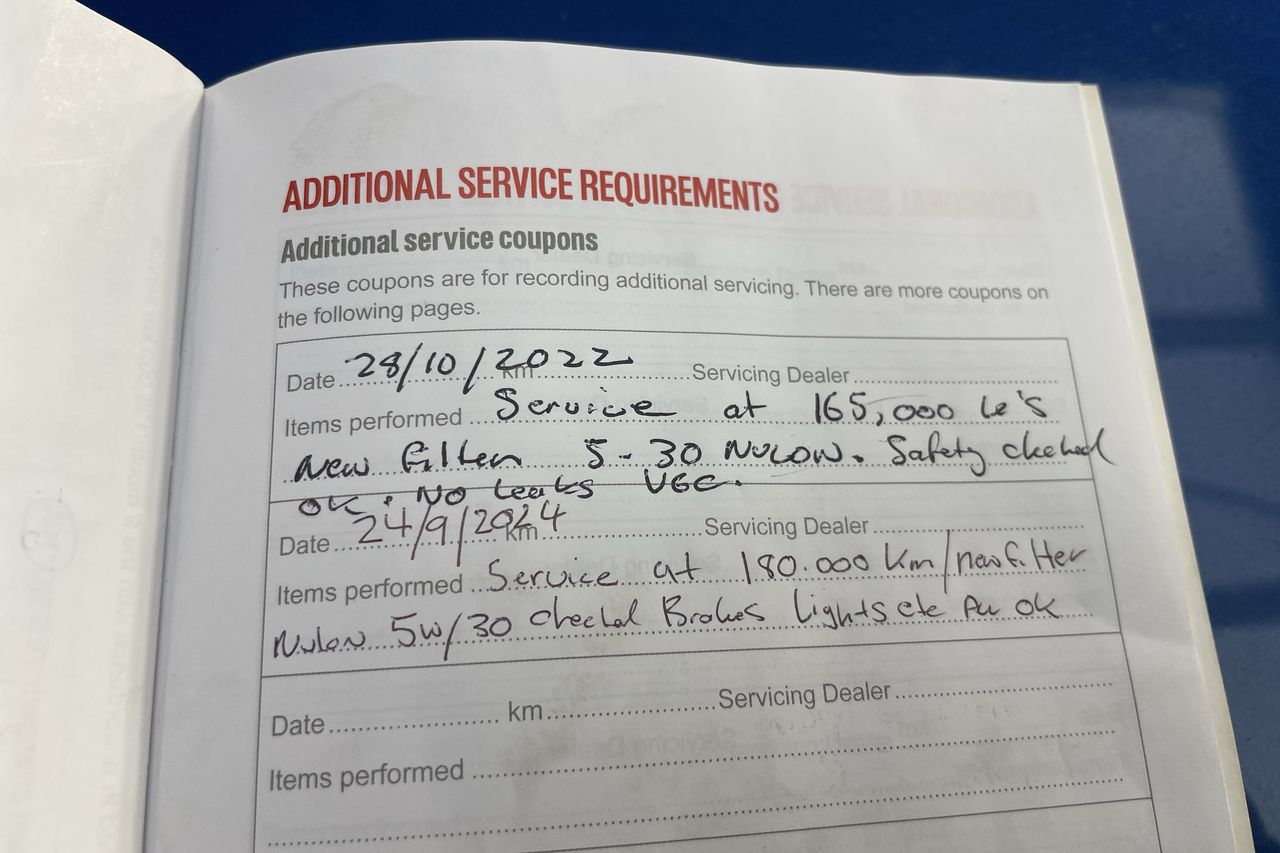 ADDITIONAL SERVICE REQUIREMENTS
Additional service coupons
These coupons are for recording additional servicing. There are more coupons on
the following pages.
Date 28/10/2022 km Servicing Dealer
Items performed Service at 165,000 k's
New filter 5-30 NULON. Safety checked
OK. NO Leaks VGC.
Date 24/9/2024 km Servicing Dealer
Items performed Service at 180.000 km/new filter
Nulon 5w/30 checked Brakes lights etc All ok
Date km Servicing Dealer
Items performed